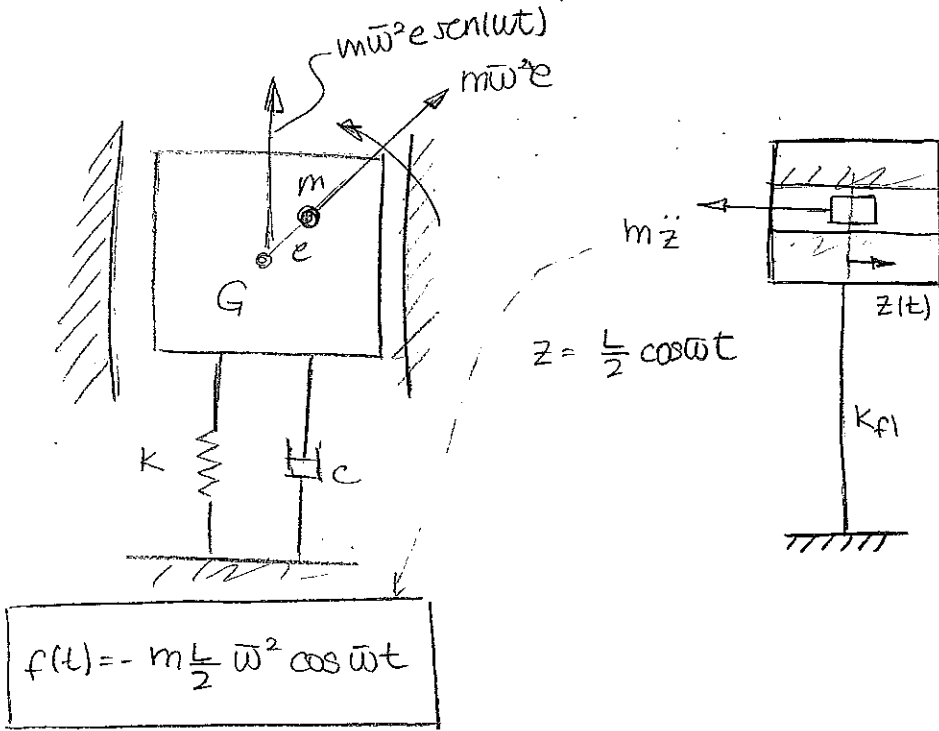 mω̄²e sen(ωt)
mω̄²e
m
e
G
K
C
m z̈
z(t)
z = L/2 cos ω̄t
K_fl
f(t) = - m L/2 ω̄² cos ω̄t